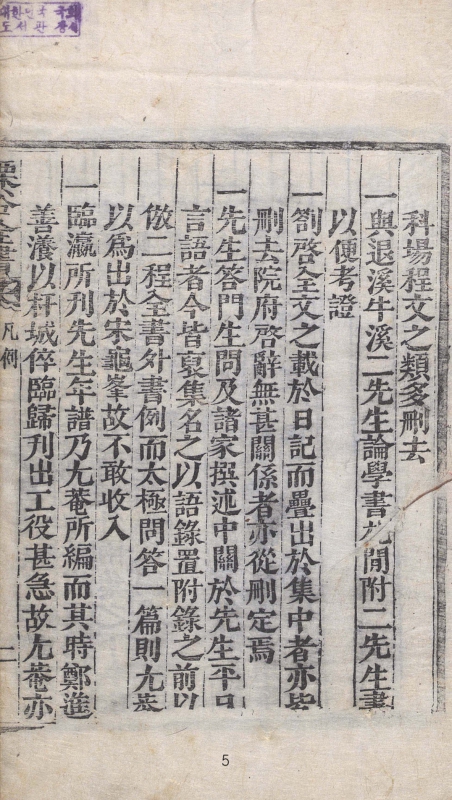 대한민국국회
도서관장서
科場程文之類多刪去
一與退溪牛溪二先生論學書札間附二先生書
以便考證
一劄啓全文之載於日記而疊出於集中者亦皆
刪去院府啓辭無甚關係者亦從刪定焉
一先生答門生問及諸家撰述中關於先生平日
言語者今皆裒集名之以語錄置附錄之前以
倣二程全書外書例而太極問答一篇則尤菴
以爲出於宋龜峯故不敢收入
一臨瀛所刊先生年譜乃尤菴所編而其時鄭進
善瀁以杆城倅臨歸刊出工役甚急故尤菴亦
栗谷全書 凡例 二
5